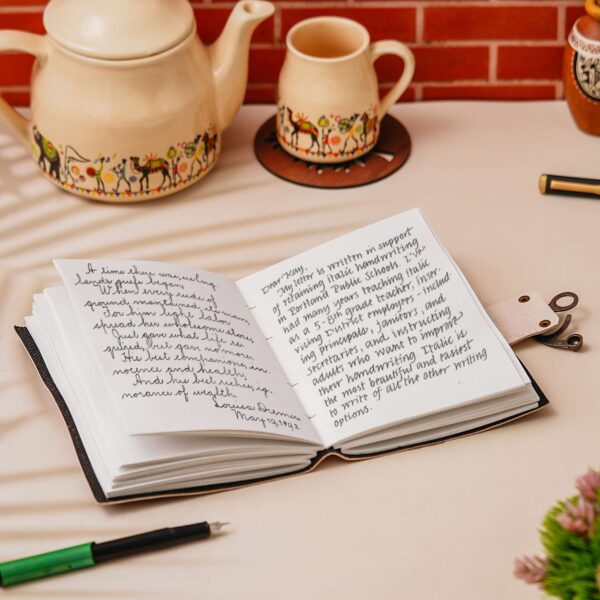 A time there was, ere Eng-
lands griefs began,
When every rood of
ground maintained its man
For him light labor
spread her wholesome store,
Just gave what life re-
quired, but gave no more,
His best companions, in-
nocence and health,
And his best riches, ig-
norance of wealth.
Louisa Dremer,
May 19, 1893.
Dear Kay,
My letter is written in support
of retaining italic handwriting
in Portland Public Schools. I've
had many years teaching italic
as a 5-8th grade teacher, inser-
vicing District employees - includ-
ing principals, janitors, and
secretaries, and instructing
adults who want to improve
their handwriting Italic is
the most beautiful and easiest
to write of all the other writing
options.